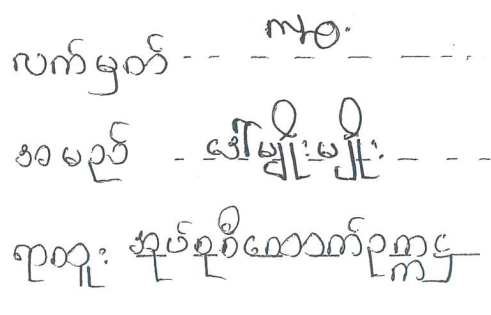 လက်မှတ် - - - - - - -
အမည် - ဒေါ်မျိုးမျိုး - - -
ရာထူး အုပ်စုစီကောက်ဥက္ကဌ